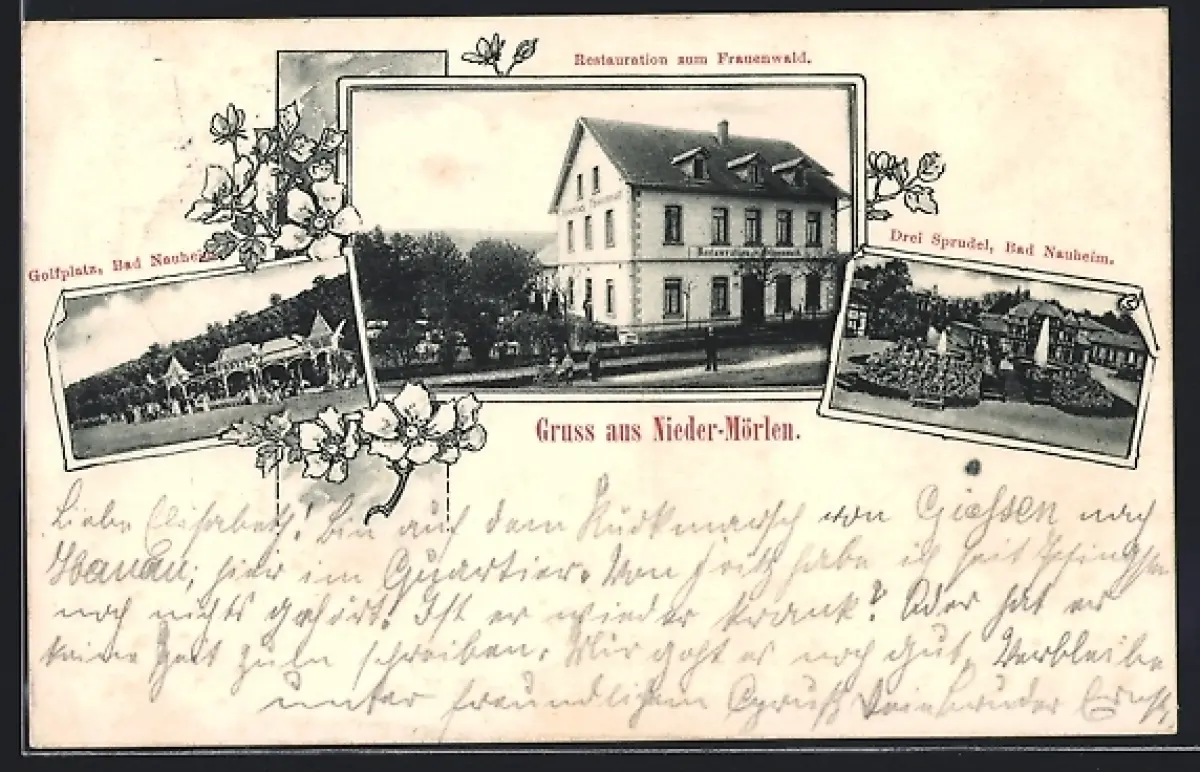 Restauration zum Frauenwald.
Golfplatz, Bad Nauheim
Drei Sprudel, Bad Nauheim.
Restauration
Gruss aus Nieder-Mörlen.
Liebe Elisabeth! Bin auf dem Rückmarsch von Giessen nach
Hanau, hier im Quartier. Von Fritz habe ich seit Pfingsten
noch nichts gehört. Ist er wieder krank? Oder hat er
keine Zeit zum schreiben. Mir geht es noch gut. Verbleibe
unter freundlichem Gruß Dein Bruder Ernst.